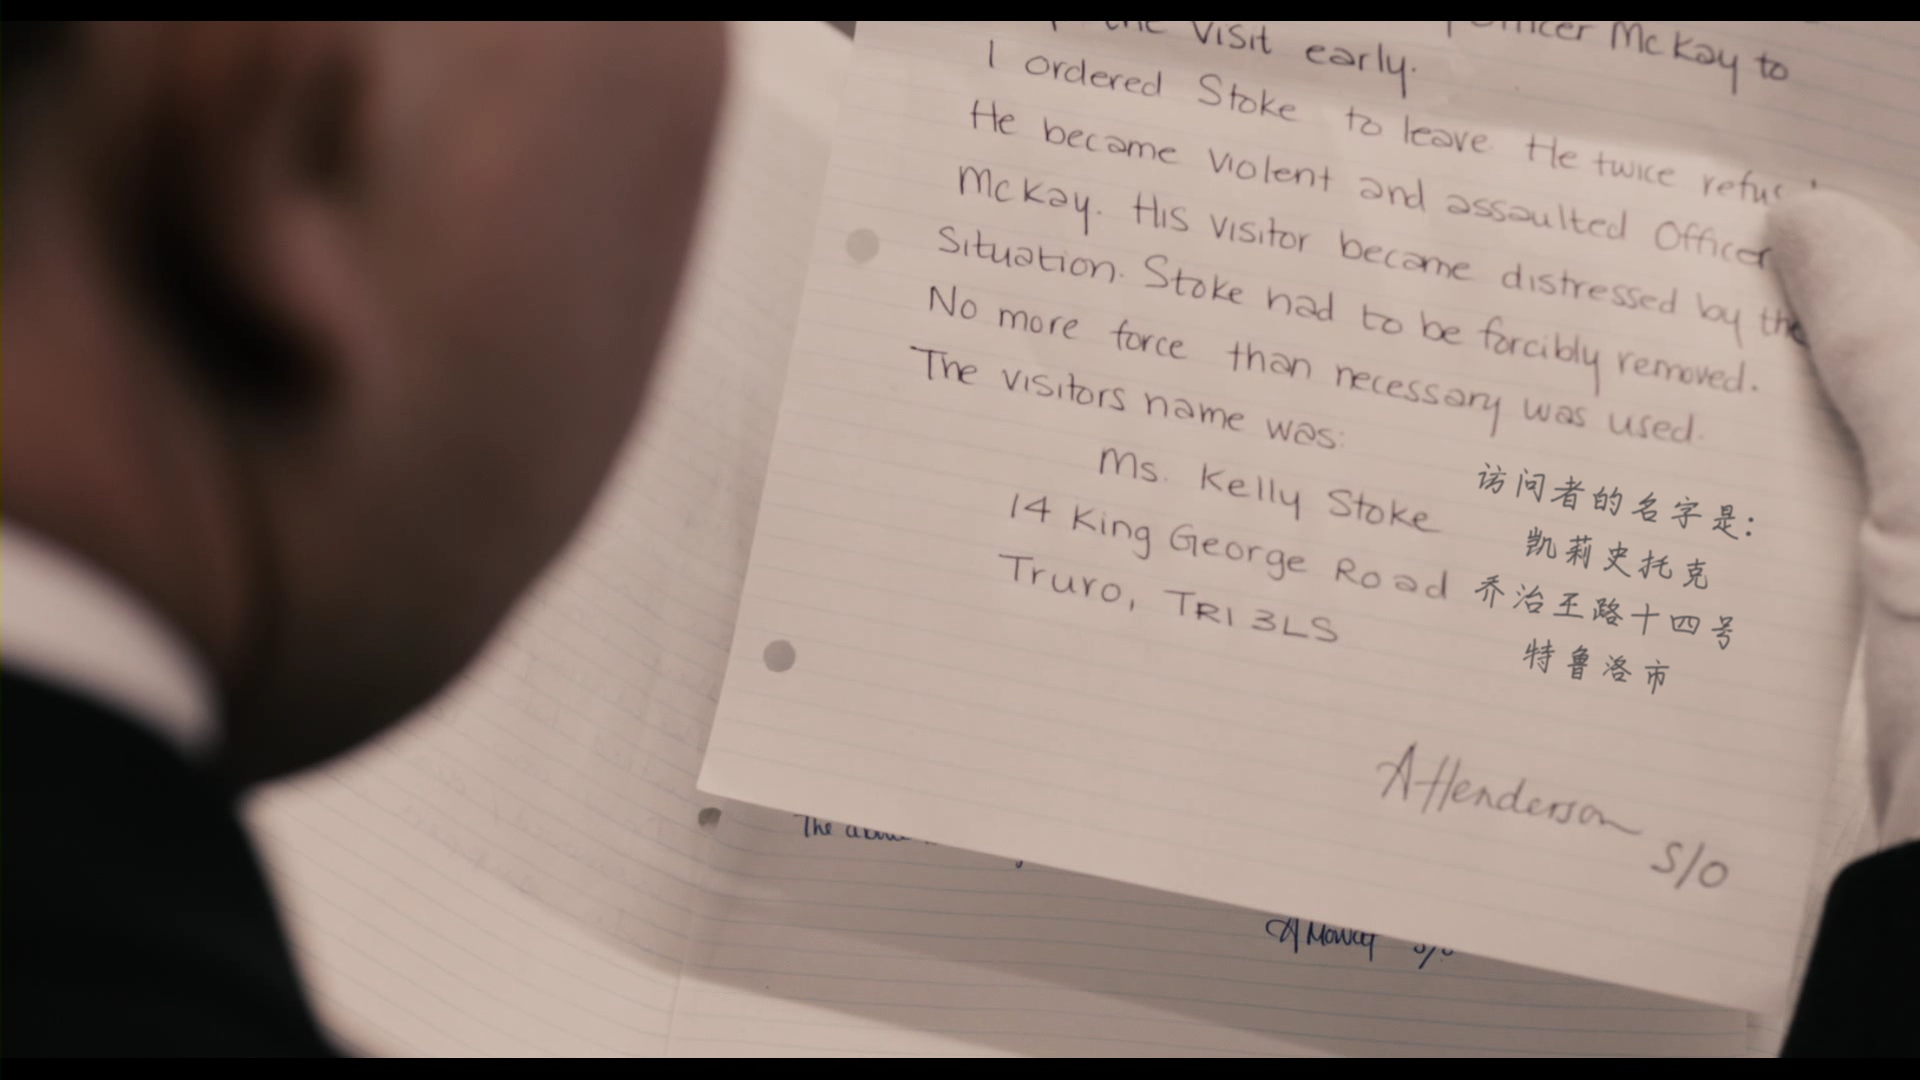 the visit early. Officer McKay to
I ordered Stoke to leave. He twice
He became violent and assaulted Officer
McKay. His visitor became distressed by the
Situation. Stoke had to be forcibly removed.
No more force than necessary was used.
The visitors name was:
Ms. Kelly Stoke
14 King George Road
Truro, TR1 3LS
访问者的名字是:
凯莉史托克
乔治王路十四号
特鲁洛市
AHenderson
S/O
The